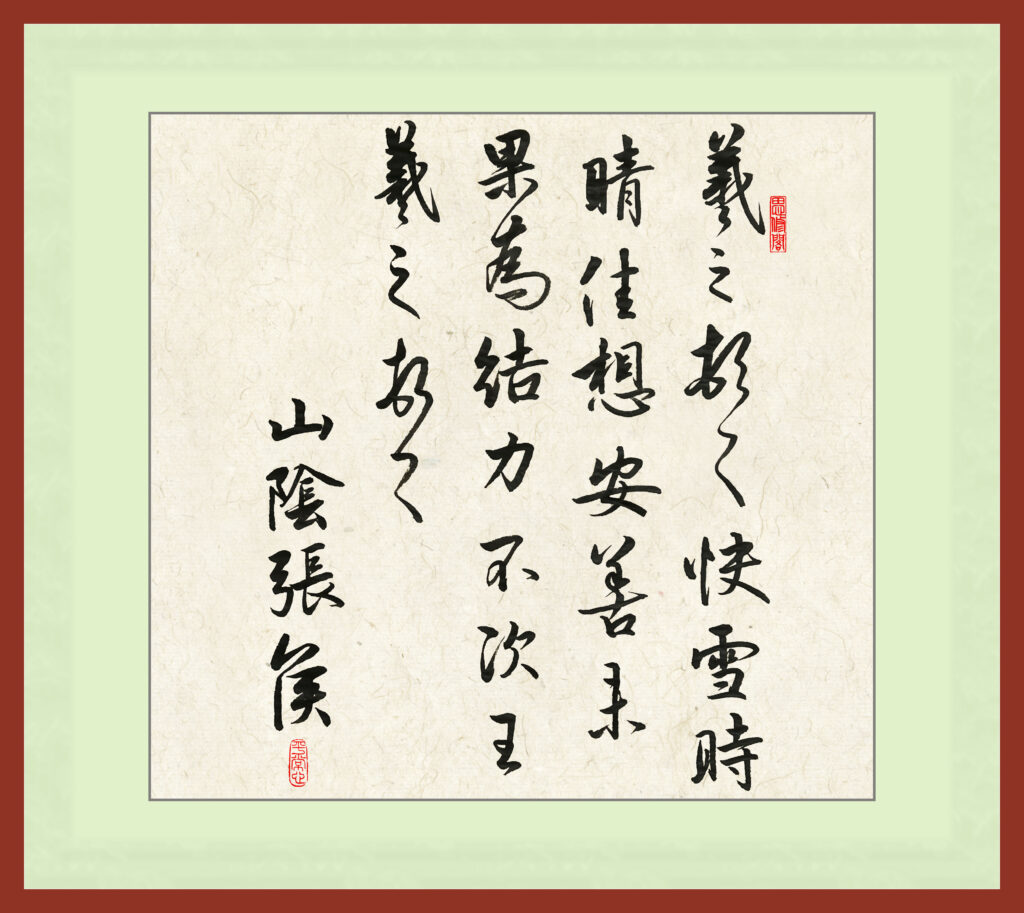 思修閣
羲之頓首快雪時
晴佳想安善未
果為結力不次王
羲之頓首
山陰張侯
平常心